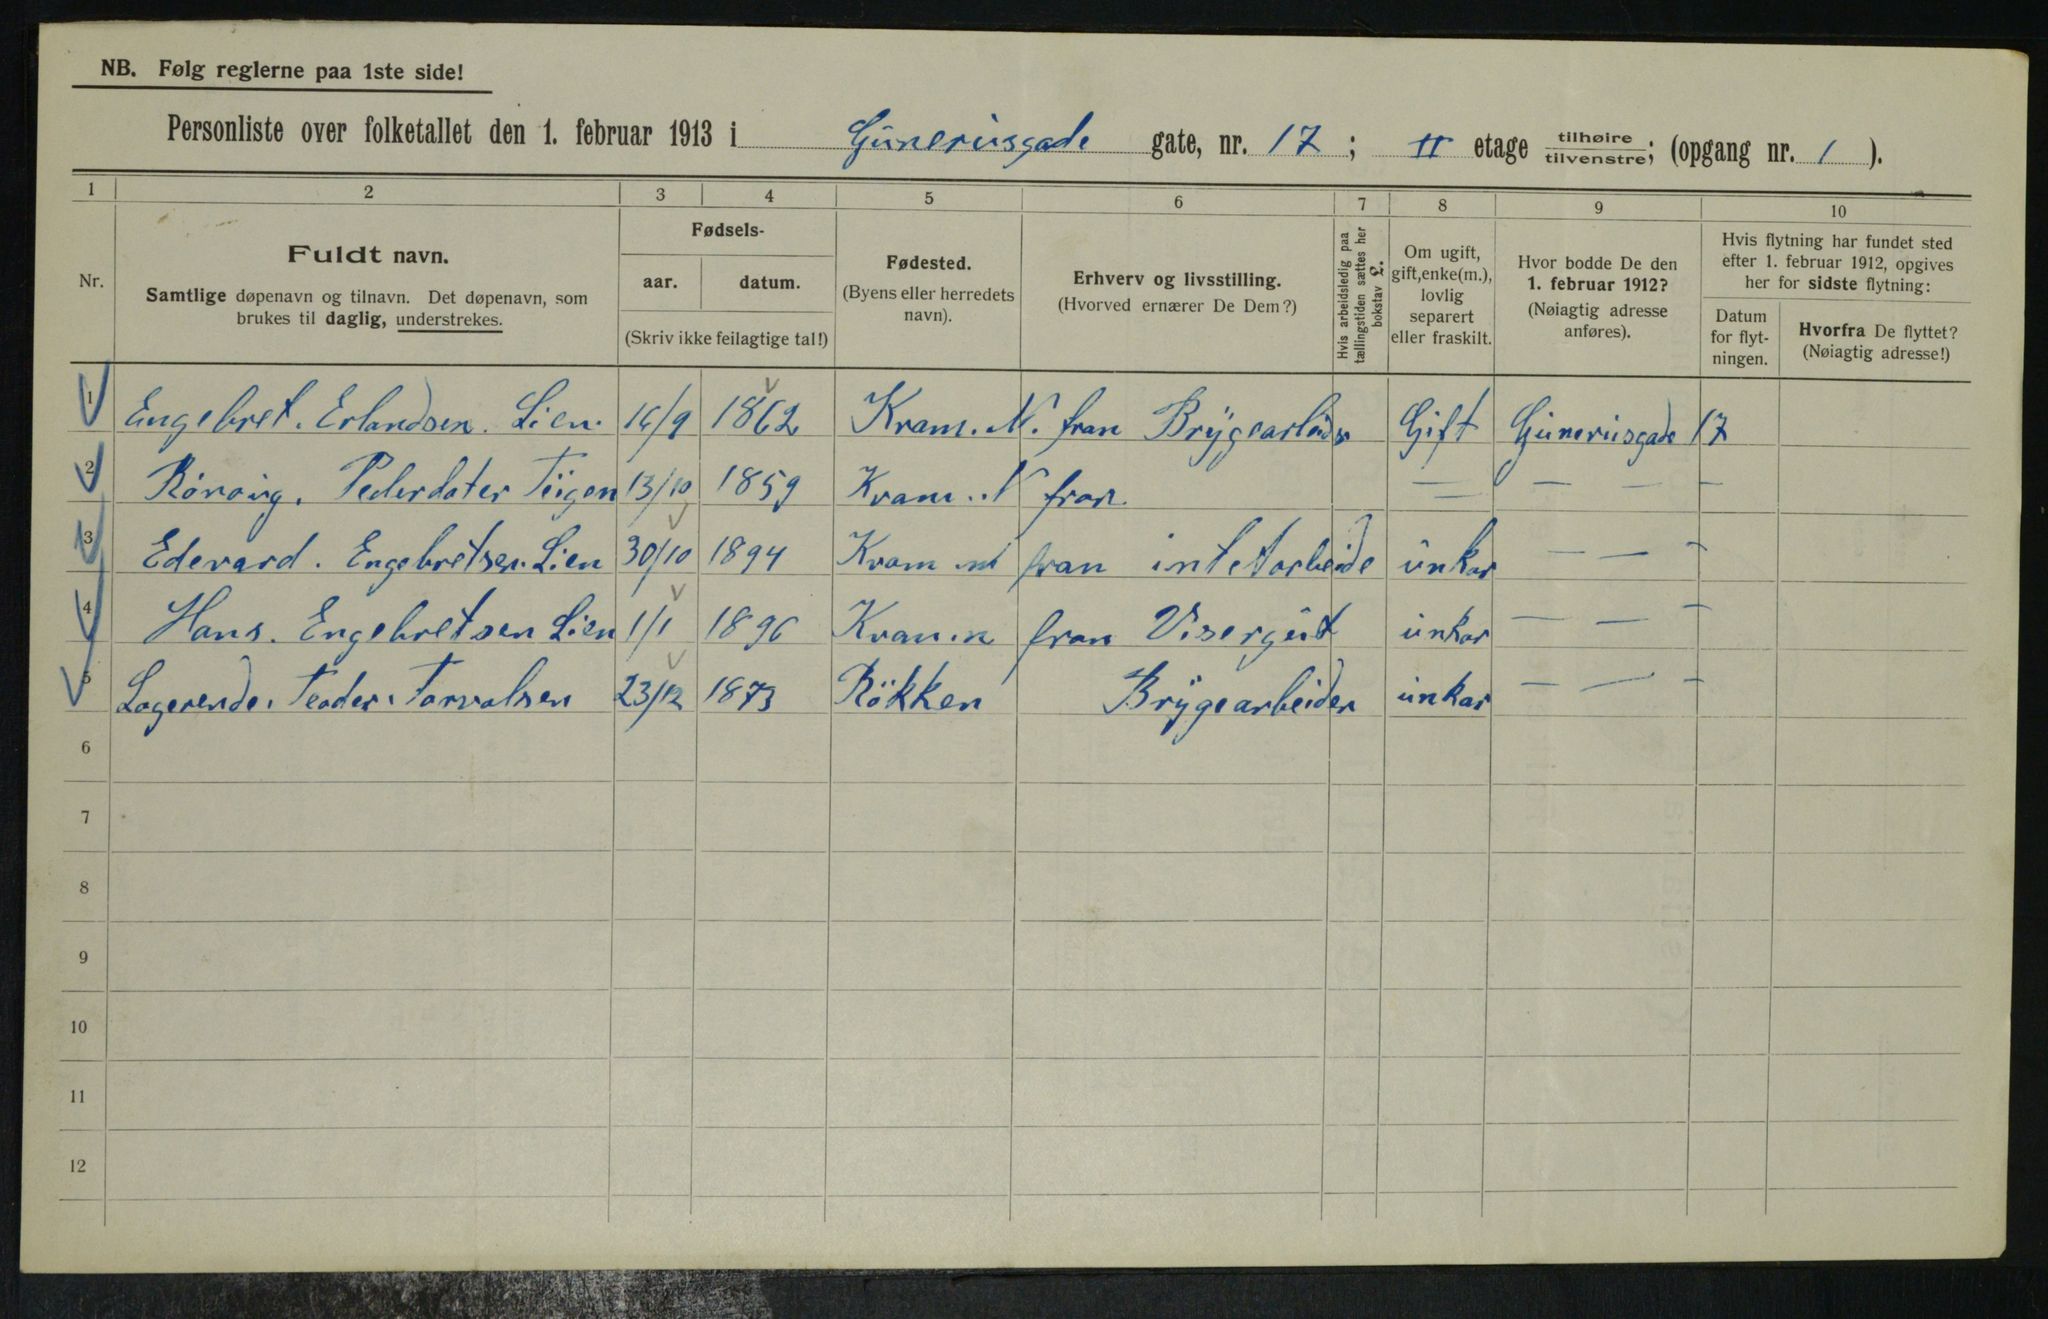 NB. Følg reglerne paa 1ste side!
Personliste over folketallet den 1. februar 1913 i Gunerusgade gate, nr. 17; II etage tilhøire/tilvenstre; (opgang nr. 1).
1 2 3 4 5 6 7 8 9 10
Nr.
Fuldt navn.
Samtlige døpenavn og tilnavn. Det døpenavn, som
brukes til daglig, understrekes.
Fødsels-
aar. datum.
(Skriv ikke feilagtige tal!)
Fødested.
(Byens eller herredets
navn).
Erhverv og livsstilling.
(Hvorved ernærer De Dem?)
Hvis arbeidsledig paa
tællingstiden sættes her
bokstav L.
Om ugift,
gift, enke(m.),
lovlig
separert
eller fraskilt.
Hvor bodde De den
1. februar 1912?
(Nøiagtig adresse
anføres).
Hvis flytning har fundet sted
efter 1. februar 1912, opgives
her for sidste flytning:
Datum
for flyt-
ningen.
Hvorfra De flyttet?
(Nøiagtig adresse!)
1 Engebret. Erlandsen. Lien. 16/9 1862 Kram. N. fran Brygearbeider Gift Gunerusgade 17
2 Pederdater Teigen 13/10 1859 Kram. N fran — — — —
3 Edevard. Engebretsen. Lien 30/10 1894 Kram. N fran intetarbeide unkar — — —
4 Hans. Engebretsen Lien 1/1 1896 Kram. n fran Visergut unkar — — —
5 Teoder. Torvalsen 23/12 1873 Røkken Brygearbeider unkar — — —
6
7
8
9
10
11
12